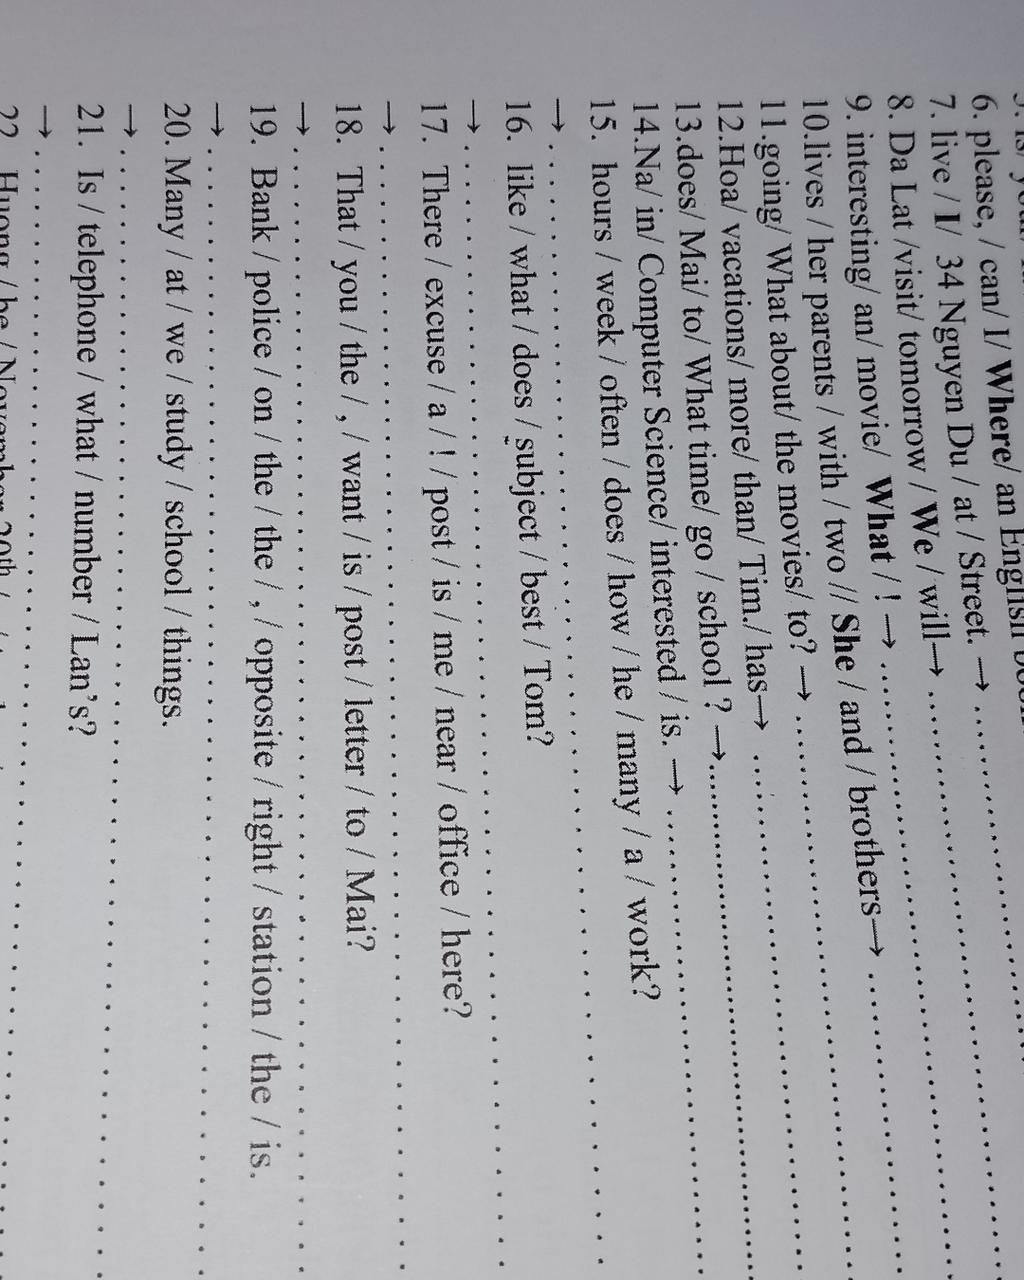 6. please, / can/ I/ Where/ an English
7. live / I/ 34 Nguyen Du / at / Street. → ..........
8. Da Lat /visit/ tomorrow / We / will→ ..........
9. interesting/ an/ movie/ What / ! → ..........
10.lives / her parents / with / two // She / and / brothers→ ..........
11.going/ What about/ the movies/ to? → ..........
12.Hoa/ vacations/ more/ than/ Tim./ has→ ..........
13.does/ Mai/ to/ What time/ go / school ? →..........
14.Na/ in/ Computer Science/ interested / is. → ..........
15. hours / week / often / does / how / he / many / a / work?
→ ..........
16. like / what / does / subject / best / Tom?
→ ..........
17. There / excuse / a / ! / post / is / me / near / office / here?
→ ..........
18. That / you / the / , / want / is / post / letter / to / Mai?
→ ..........
19. Bank / police / on / the / the / , / opposite / right / station / the / is.
→ ..........
20. Many / at / we / study / school / things.
→ ..........
21. Is / telephone / what / number / Lan's?
→ ..........
22. Huong / be / November 20th /